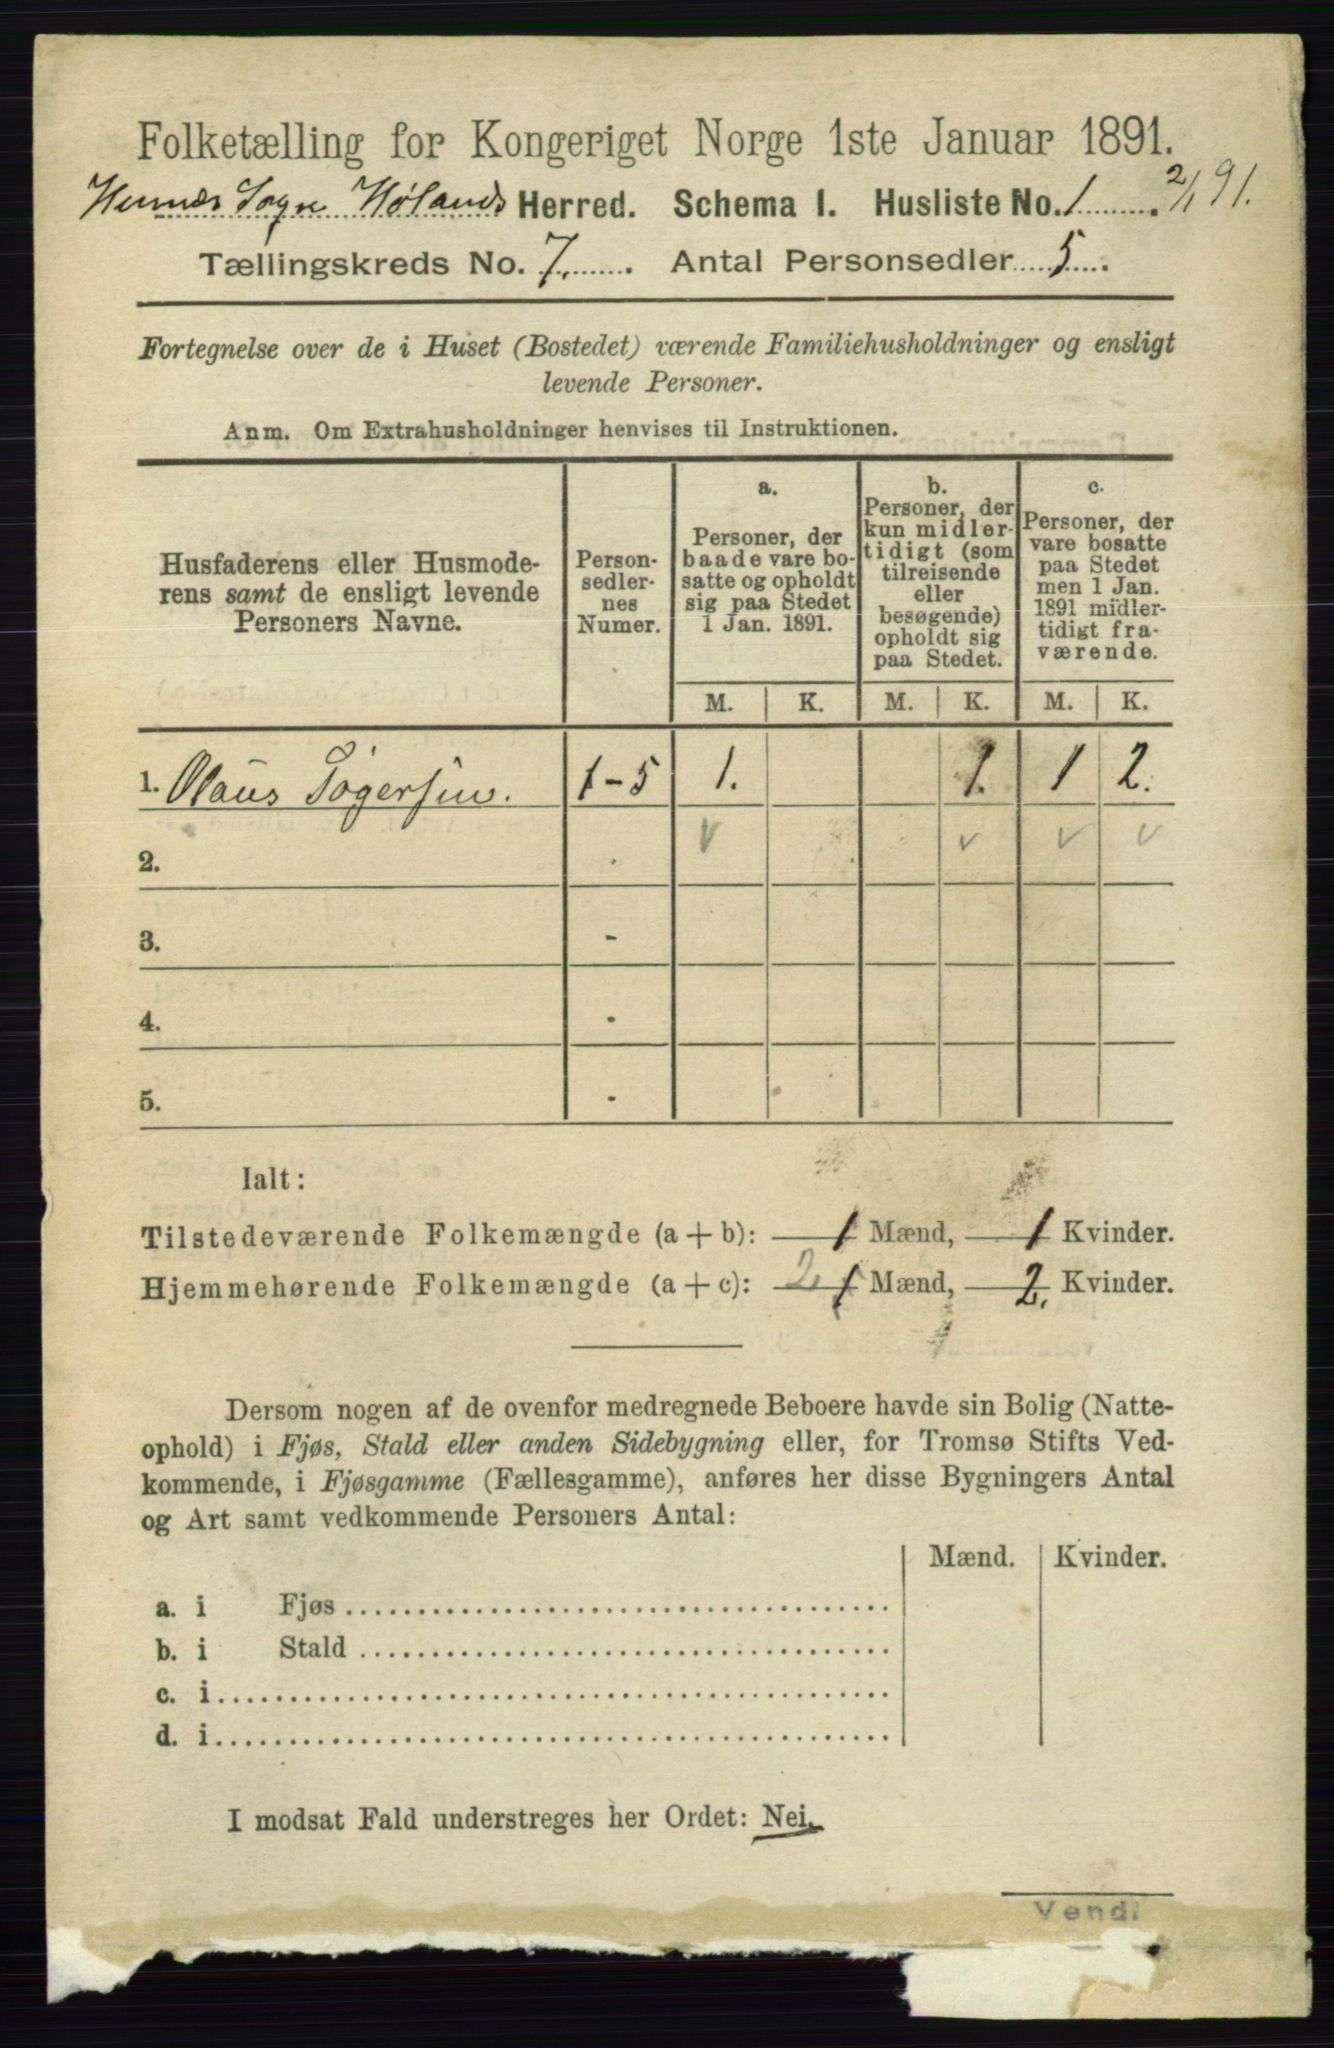 Folketælling for Kongeriget Norge 1ste Januar 1891.
Sogn Hølands Herred. Schema I. Husliste No. 1 . 2/1 91.
Tællingskreds No. 7. . Antal Personsedler 5 .
Fortegnelse over de i Huset (Bostedet) værende Familiehusholdninger og ensligt
levende Personer.
Anm. Om Extrahusholdninger henvises til Instruktionen.
Husfaderens eller Husmode-
rens samt de ensligt levende
Personers Navne.
Person-
sedler-
nes
Numer.
a.
Personer, der
baade vare bo-
satte og opholdt
sig paa Stedet
1 Jan. 1891.
b.
Personer, der
kun midler-
tidigt (som
tilreisende
eller
besøgende)
opholdt sig
paa Stedet.
c.
Personer, der
vare bosatte
paa Stedet
men 1 Jan.
1891 midler-
tidigt fra-
værende.
M. K. M. K. M. K.
1. Olaus 1-5 1. 1. 1 2.
2. . v v v v
3. -
4. .
5. .
Ialt:
Tilstedeværende Folkemængde (a + b): 1 Mænd, 1 Kvinder.
Hjemmehørende Folkemængde (a + c): 2 1 Mænd, 2. Kvinder.
Dersom nogen af de ovenfor medregnede Beboere havde sin Bolig (Natte-
ophold) i Fjøs, Stald eller anden Sidebygning eller, for Tromsø Stifts Ved-
kommende, i Fjøsgamme (Fællesgamme), anføres her disse Bygningers Antal
og Art samt vedkommende Personers Antal:
Mænd. Kvinder.
a. i Fjøs
b. i Stald
c. i
d. i
I modsat Fald understreges her Ordet: Nei.
Vend!